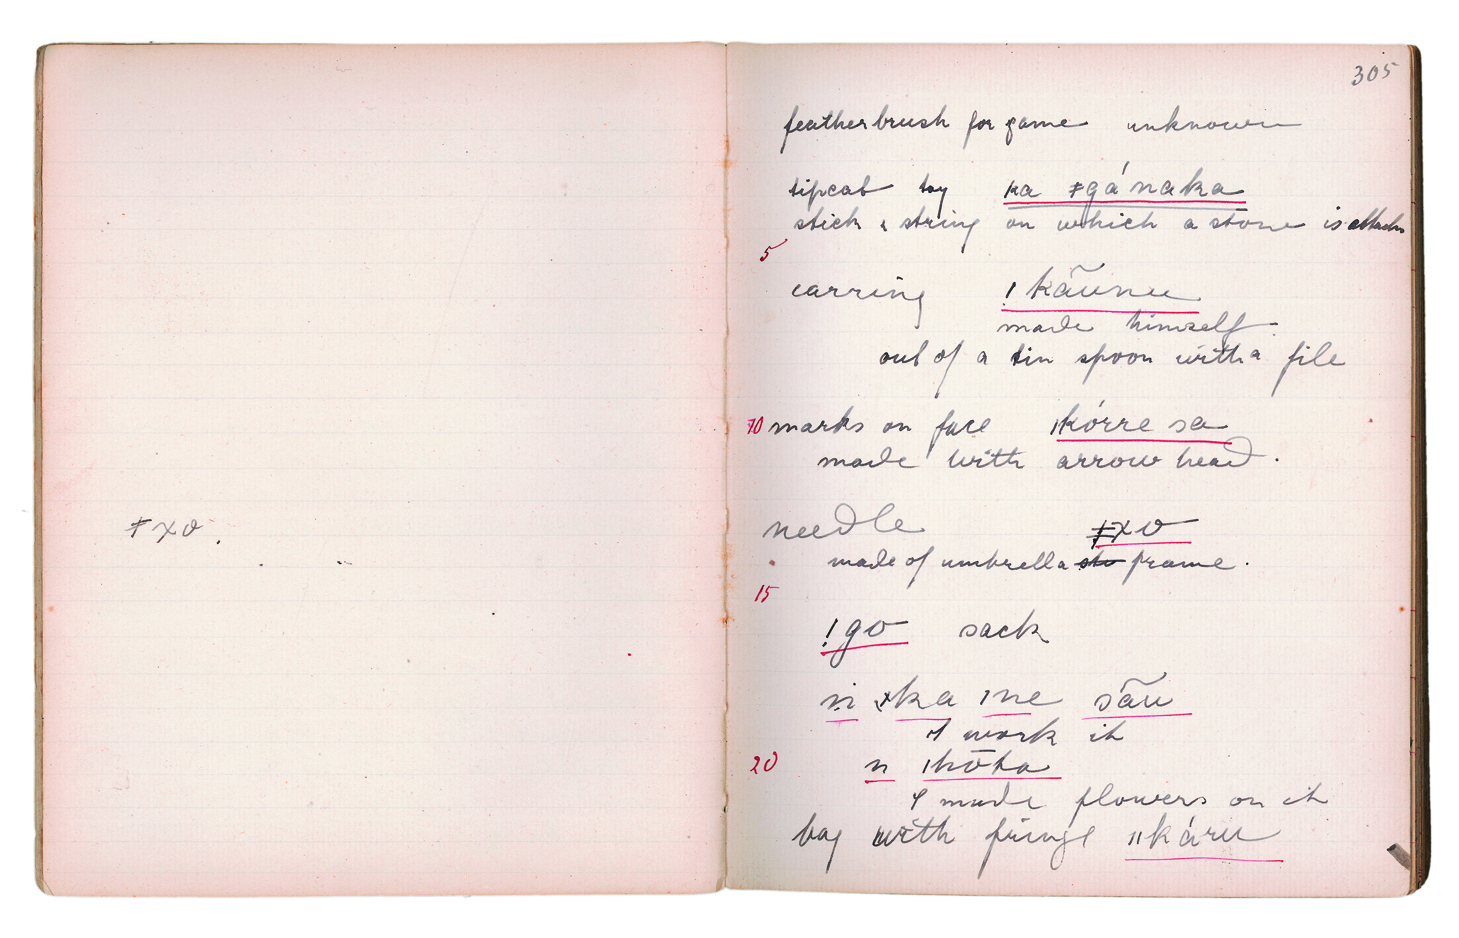 ǂxo.
305
featherbrush for game unknown
tipcat toy ka ǂgánaka
stick & string on which a stone is attach
5
earring !kãunu
made himself.
out of a tin spoon with a file
10 marks on face ǀkórre sa
made with arrow head.
needle ǂxo
made of umbrella frame.
15
!go sack
ṅ ǂka ǀne sãu
I work it
20 n ǀkōta
I made flowers on it
bag with fringe ǁkáru